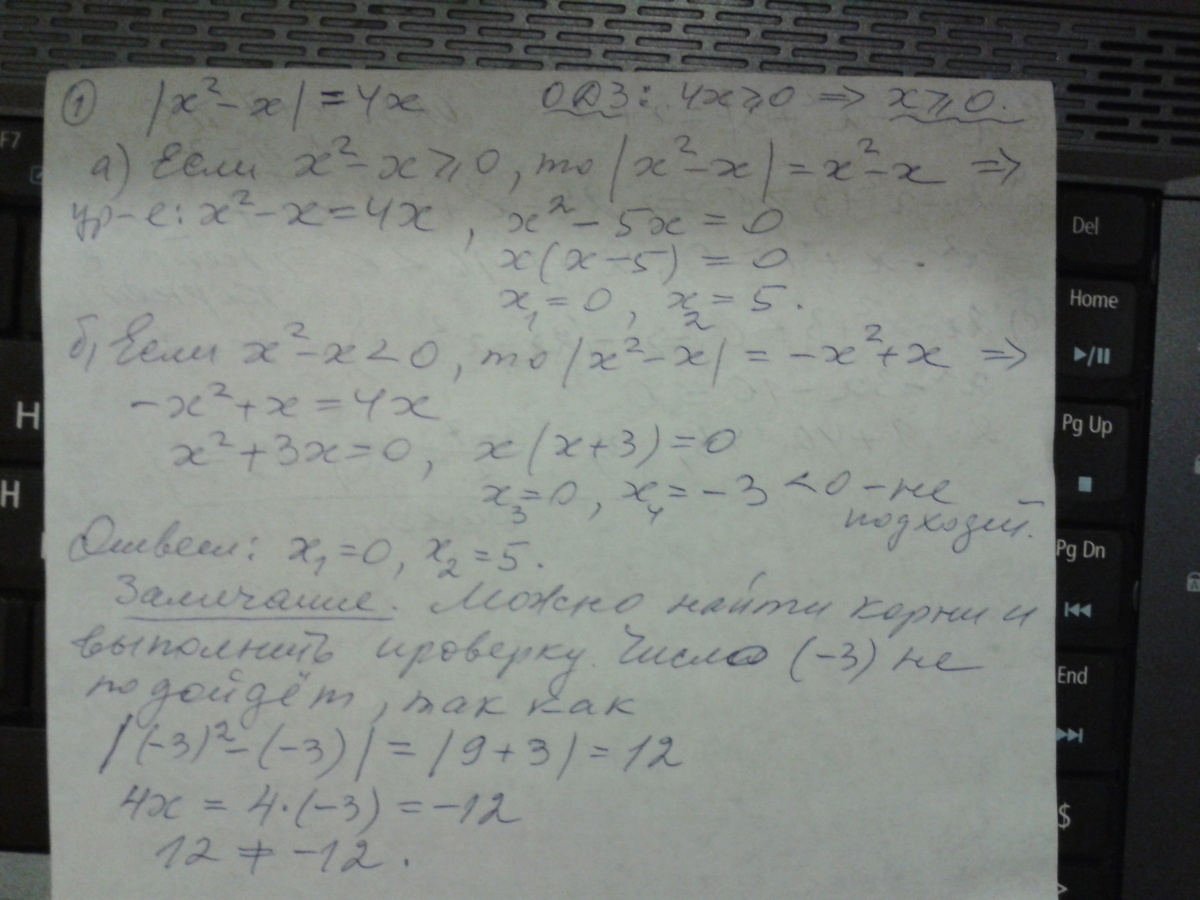 ① |x²-x| = 4x ОДЗ: 4x⩾0 ⇒ x⩾0.
а) Если x²-x⩾0, то |x²-x| = x²-x ⇒
ур-е: x²-x=4x, x²-5x=0
x(x-5)=0
x₁=0, x₂=5.
б) Если x²-x<0, то |x²-x| = -x²+x ⇒
-x²+x=4x
x²+3x=0, x(x+3)=0
x₃=0, x₄=-3<0 - не
подходит.
Ответ: x₁=0, x₂=5.
Замечание. Можно найти корни и
выполнить проверку. Число (-3) не
подойдёт, так как
|(-3)²-(-3)| = |9+3| = 12
4x = 4·(-3) = -12
12 ≠ -12.
F7
H
H
Del
Home
Pg Up
Pg Dn
End
$